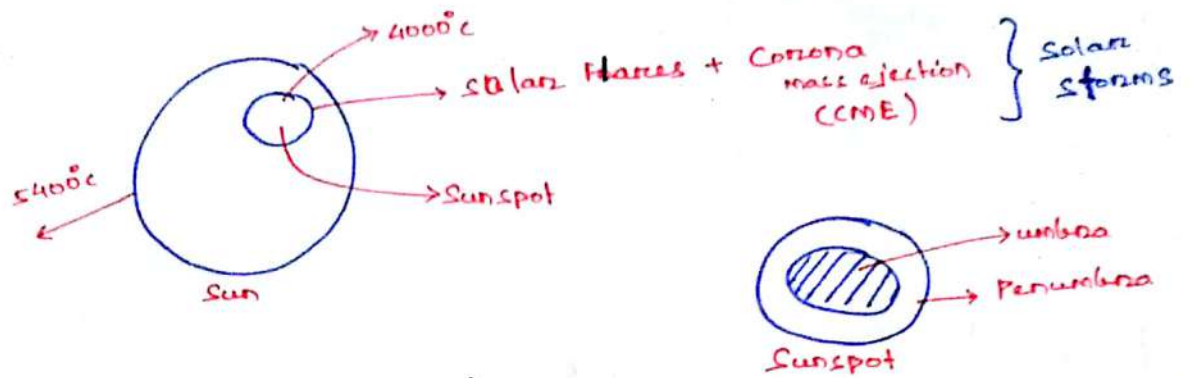 4000°c
Solar Flares + Corona
mass ejection
(CME)
Solar
storms
5400°c
Sunspot
Sun
umbra
Penumbra
Sunspot